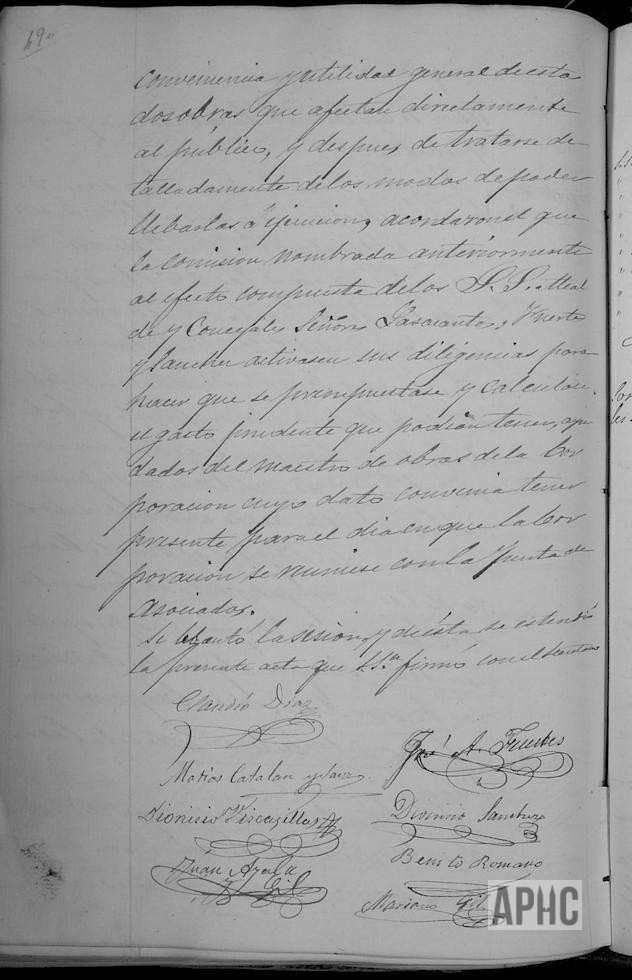 49
conveniencia y utilidad general de esta
dos obras que afectan directamente
al público, y despues de tratarse de
talladamente de los modos de poder
llebarlas á ejecucion, acordaron el que
la comision nombrada anteriormente
al efecto compuesta de los S.S. Alcal
de y Concejales Señores Sascrantos, Fuerte
y Sanchez activasen sus diligencias para
hacer que se presupuestase y calculase
el gasto prudente que podian tener, ayu
dados del Maestro de obras de la Cor
poracion cuyo dato convenia tener
presente para el dia en que la Cor
poracion se reuniese con la Junta de
Asociados.
Se lebantó la sesion, y de ésta se estendió
la presente acta que S.Sª firmó con el Secretario
Claudio Diaz
José A. Fuentes
Matias Catalan
Dionisio Viscasillas
Dionisio Sanchez
Benito Romano
Juán Ayala
Gil
Mariano Gil
APHC